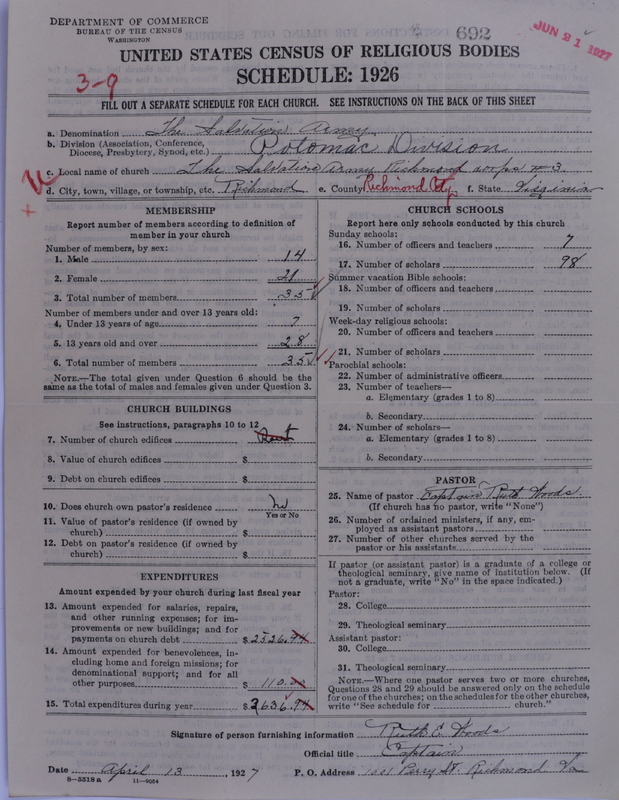 DEPARTMENT OF COMMERCE
BUREAU OF THE CENSUS
WASHINGTON
692
JUN 21 1927
UNITED STATES CENSUS OF RELIGIOUS BODIES
SCHEDULE: 1926
3-9
FILL OUT A SEPARATE SCHEDULE FOR EACH CHURCH. SEE INSTRUCTIONS ON THE BACK OF THIS SHEET
a. Denomination The Salvation Army
b. Division (Association, Conference, Diocese, Presbytery, Synod, etc.) Potomac Division
c. Local name of church The Salvation Army Richmond corps # 3
d. City, town, village, or township, etc. Richmond e. County Richmond City f. State Virginia
MEMBERSHIP
Report number of members according to definition of
member in your church
Number of members, by sex:
1. Male 14
2. Female 21
3. Total number of members 35
Number of members under and over 13 years old:
4. Under 13 years of age 7
5. 13 years old and over 28
6. Total number of members 35
NOTE.—The total given under Question 6 should be the
same as the total of males and females given under Question 3.
CHURCH BUILDINGS
See instructions, paragraphs 10 to 12
7. Number of church edifices Rent
8. Value of church edifices $
9. Debt on church edifices $
10. Does church own pastor's residence No
Yes or No
11. Value of pastor's residence (if owned by
church) $
12. Debt on pastor's residence (if owned by
church) $
EXPENDITURES
Amount expended by your church during last fiscal year
13. Amount expended for salaries, repairs,
and other running expenses; for im-
provements or new buildings; and for
payments on church debt $ 2526.94
14. Amount expended for benevolences, in-
cluding home and foreign missions; for
denominational support; and for all
other purposes $ 110.
15. Total expenditures during year $ 2636.94
CHURCH SCHOOLS
Report here only schools conducted by this church
Sunday schools:
16. Number of officers and teachers 7
17. Number of scholars 98
Summer vacation Bible schools:
18. Number of officers and teachers
19. Number of scholars
Week-day religious schools:
20. Number of officers and teachers
21. Number of scholars
Parochial schools:
22. Number of administrative officers
23. Number of teachers—
a. Elementary (grades 1 to 8)
b. Secondary
24. Number of scholars—
a. Elementary (grades 1 to 8)
b. Secondary
PASTOR
25. Name of pastor Captain Ruth Woods
(If church has no pastor, write "None")
26. Number of ordained ministers, if any, em-
ployed as assistant pastors
27. Number of other churches served by the
pastor or his assistants
If pastor (or assistant pastor) is a graduate of a college or
theological seminary, give name of institution below. (If
not a graduate, write "No" in the space indicated.)
Pastor:
28. College
29. Theological seminary
Assistant pastor:
30. College
31. Theological seminary
NOTE.—Where one pastor serves two or more churches,
Questions 28 and 29 should be answered only on the schedule
for one of the churches; on the schedules for the other churches,
write "See schedule for church."
Signature of person furnishing information Ruth E. Woods
Official title Captain
Date April 13, 1927 P. O. Address Perry St. Richmond Va
8—5318 a 11—9054